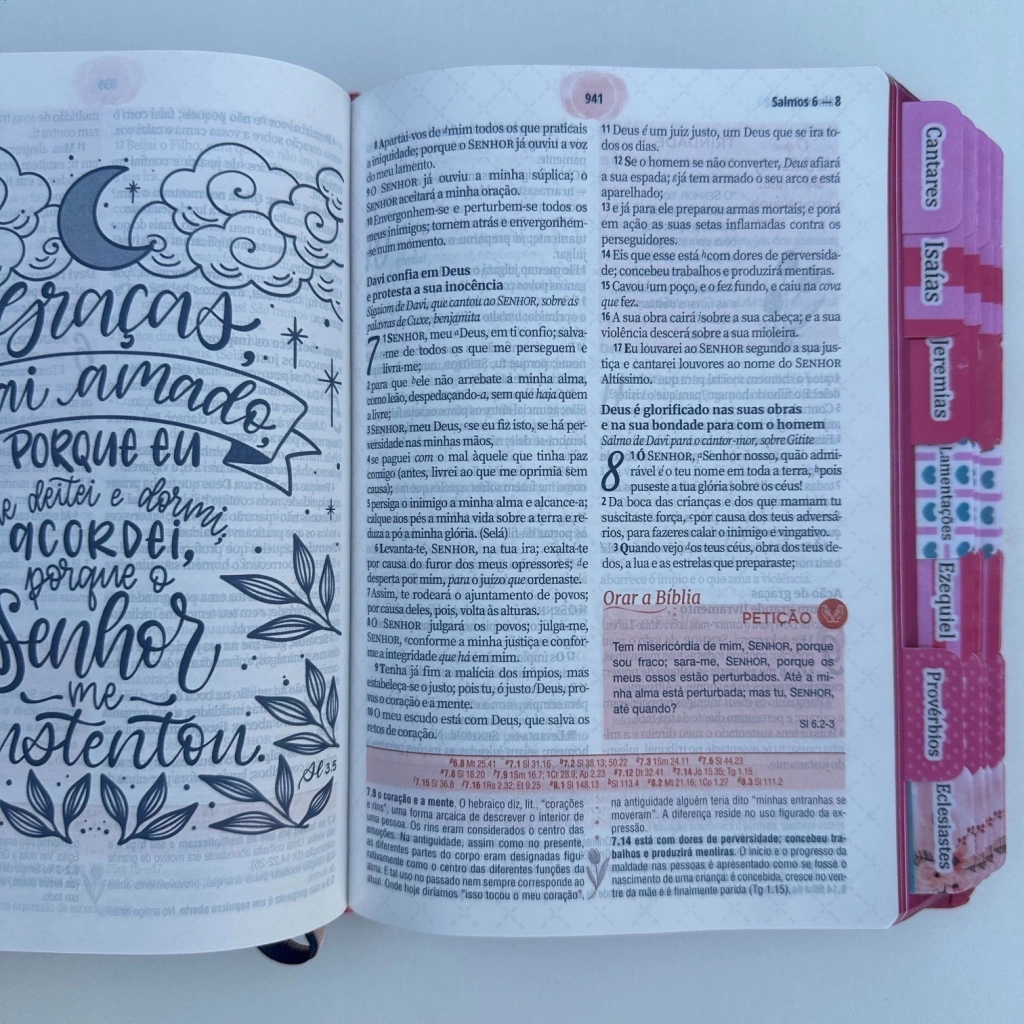 graças,
amado,
PORQUE EU
deitei e dormi,
ACORDEI,
porque o
Senhor
me
Sl 3.5
941
Salmos 6 — 8
8 Apartai-vos de dmim todos os que praticais
a iniquidade; porque o SENHOR já ouviu a voz
do meu lamento.
9 O SENHOR já ouviu a minha súplica; o
SENHOR aceitará a minha oração.
10 Envergonhem-se e perturbem-se todos os
meus inimigos; tornem atrás e envergonhem-
-se num momento.
Davi confia em Deus
e protesta a sua inocência
Sigaiom de Davi, que cantou ao SENHOR, sobre as
palavras de Cuxe, benjamita
7 1 SENHOR, meu aDeus, em ti confio; salva-
-me de todos os que me perseguem e
livra-me;
2 para que bele não arrebate a minha alma,
como leão, despedaçando-a, sem que haja quem
a livre;
3 SENHOR, meu Deus, cse eu fiz isto, se há per-
versidade nas minhas mãos,
4 se paguei com o mal àquele que tinha paz
comigo (antes, livrei ao que me oprimia sem
causa);
5 persiga o inimigo a minha alma e alcance-a;
calque aos pés a minha vida sobre a terra e re-
duza a pó a minha glória. (Selá)
6 Levanta-te, SENHOR, na tua ira; exalta-te
por causa do furor dos meus opressores; de
desperta por mim, para o juízo que ordenaste.
7 Assim, te rodeará o ajuntamento de povos;
por causa deles, pois, volta às alturas.
8 O SENHOR julgará os povos; julga-me,
SENHOR, econforme a minha justiça e confor-
me a integridade que há em mim.
9 Tenha já fim a malícia dos ímpios, mas
estabeleça-se o justo; pois tu, ó justo fDeus, pro-
vas o coração e a mente.
10 O meu escudo está com Deus, que salva os
retos de coração.
11 Deus é um juiz justo, um Deus que se ira to-
dos os dias.
12 Se o homem se não converter, Deus afiará
a sua espada; gjá tem armado o seu arco e está
aparelhado;
13 e já para ele preparou armas mortais; e porá
em ação as suas setas inflamadas contra os
perseguidores.
14 Eis que esse está hcom dores de perversida-
de; concebeu trabalhos e produzirá mentiras.
15 Cavou ium poço, e o fez fundo, e caiu na cova
que fez.
16 A sua obra cairá jsobre a sua cabeça; e a sua
violência descerá sobre a sua mioleira.
17 Eu louvarei ao SENHOR segundo a sua jus-
tiça e cantarei louvores ao nome do SENHOR
Altíssimo.
Deus é glorificado nas suas obras
e na sua bondade para com o homem
Salmo de Davi para o cantor-mor, sobre Gitite
8 1 Ó SENHOR, aSenhor nosso, quão admi-
rável é o teu nome em toda a terra, bpois
puseste a tua glória sobre os céus!
2 Da boca das crianças e dos que mamam tu
suscitaste força, cpor causa dos teus adversá-
rios, para fazeres calar o inimigo e vingativo.
3 Quando vejo dos teus céus, obra dos teus de-
dos, a lua e as estrelas que preparaste;
Orar a Bíblia
PETIÇÃO
Tem misericórdia de mim, SENHOR, porque
sou fraco; sara-me, SENHOR, porque os
meus ossos estão perturbados. Até a mi-
nha alma está perturbada; mas tu, SENHOR,
até quando?
Sl 6.2-3
d6.8 Mt 25.41 a7.1 Sl 31.16 b7.2 Sl 38.13; 50.22 c7.3 1Sm 24.11 Sl 44.23
e7.8 Sl 18.20 f7.9 1Sm 16.7; 1Cr 28.9; Ap 2.23 g7.12 Dt 32.41 h7.14 Jó 15.35; Tg 1.15
i7.15 Sl 36.8 j7.16 1Rs 2.32; Et 9.25 a8.1 Sl 148.13 bSl 113.4 c8.2 Mt 21.16; 1Co 1.27 d8.3 Sl 111.2
7.9 o coração e a mente. O hebraico diz, lit., "corações
e rins", uma forma arcaica de descrever o interior de
uma pessoa. Os rins eram considerados o centro das
emoções. Na antiguidade, assim como no presente,
as diferentes partes do corpo eram designadas figu-
rativamente como o centro das diferentes funções da
alma. E tal uso no passado nem sempre corresponde ao
atual. Onde hoje diríamos "isso tocou o meu coração",
na antiguidade alguém teria dito "minhas entranhas se
moveram". A diferença reside no uso figurado da ex-
pressão.
7.14 está com dores de perversidade; concebeu tra-
balhos e produzirá mentiras. O início e o progresso da
maldade nas pessoas é apresentado como se fosse o
nascimento de uma criança: é concebida, cresce no ven-
tre da mãe e é finalmente parida (Tg 1.15).
Cantares
Isaías
Jeremias
Lamentações
Ezequiel
Provérbios
Eclesiastes